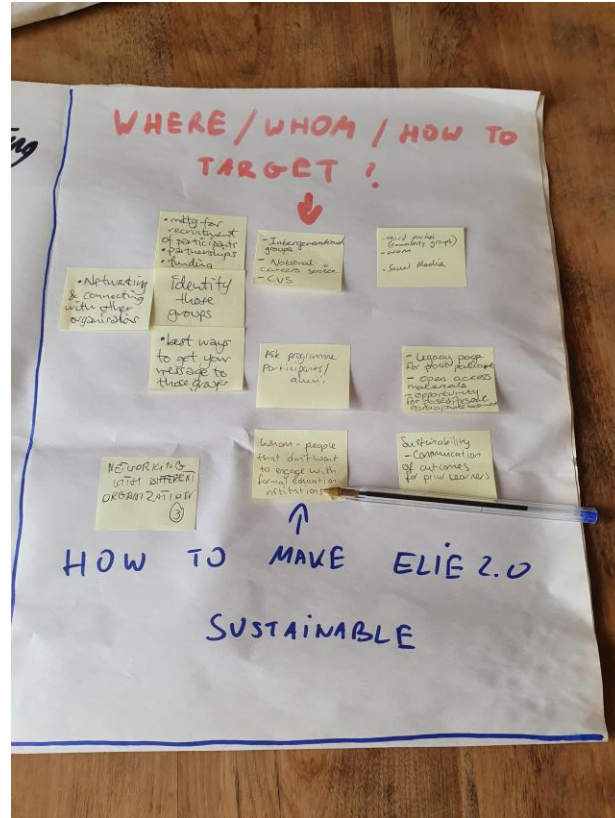 WHERE / WHOM / HOW TO
TARGET ?
• mktg for
recruitment
of participants
• partnerships
• funding
- Intergenerational
groups
- National
careers service
- CVS
(community groups)
- WOM
- Social Media
• Networking
& connecting
with other
organisations
Identify
those
groups
• best ways
to get your
message to
those groups
Ask programme
Participants/
alumni
- Legacy page
for past
- Open access
materials
- opportunity
for past/present
Whom - people
that don't want
to engage with
formal education
institutions
Sustainability
- Communication
of outcomes
for prior learners
NETWORKING
WITH DIFFERENT
ORGANIZATION
3
HOW TO MAKE ELIE 2.0
SUSTAINABLE